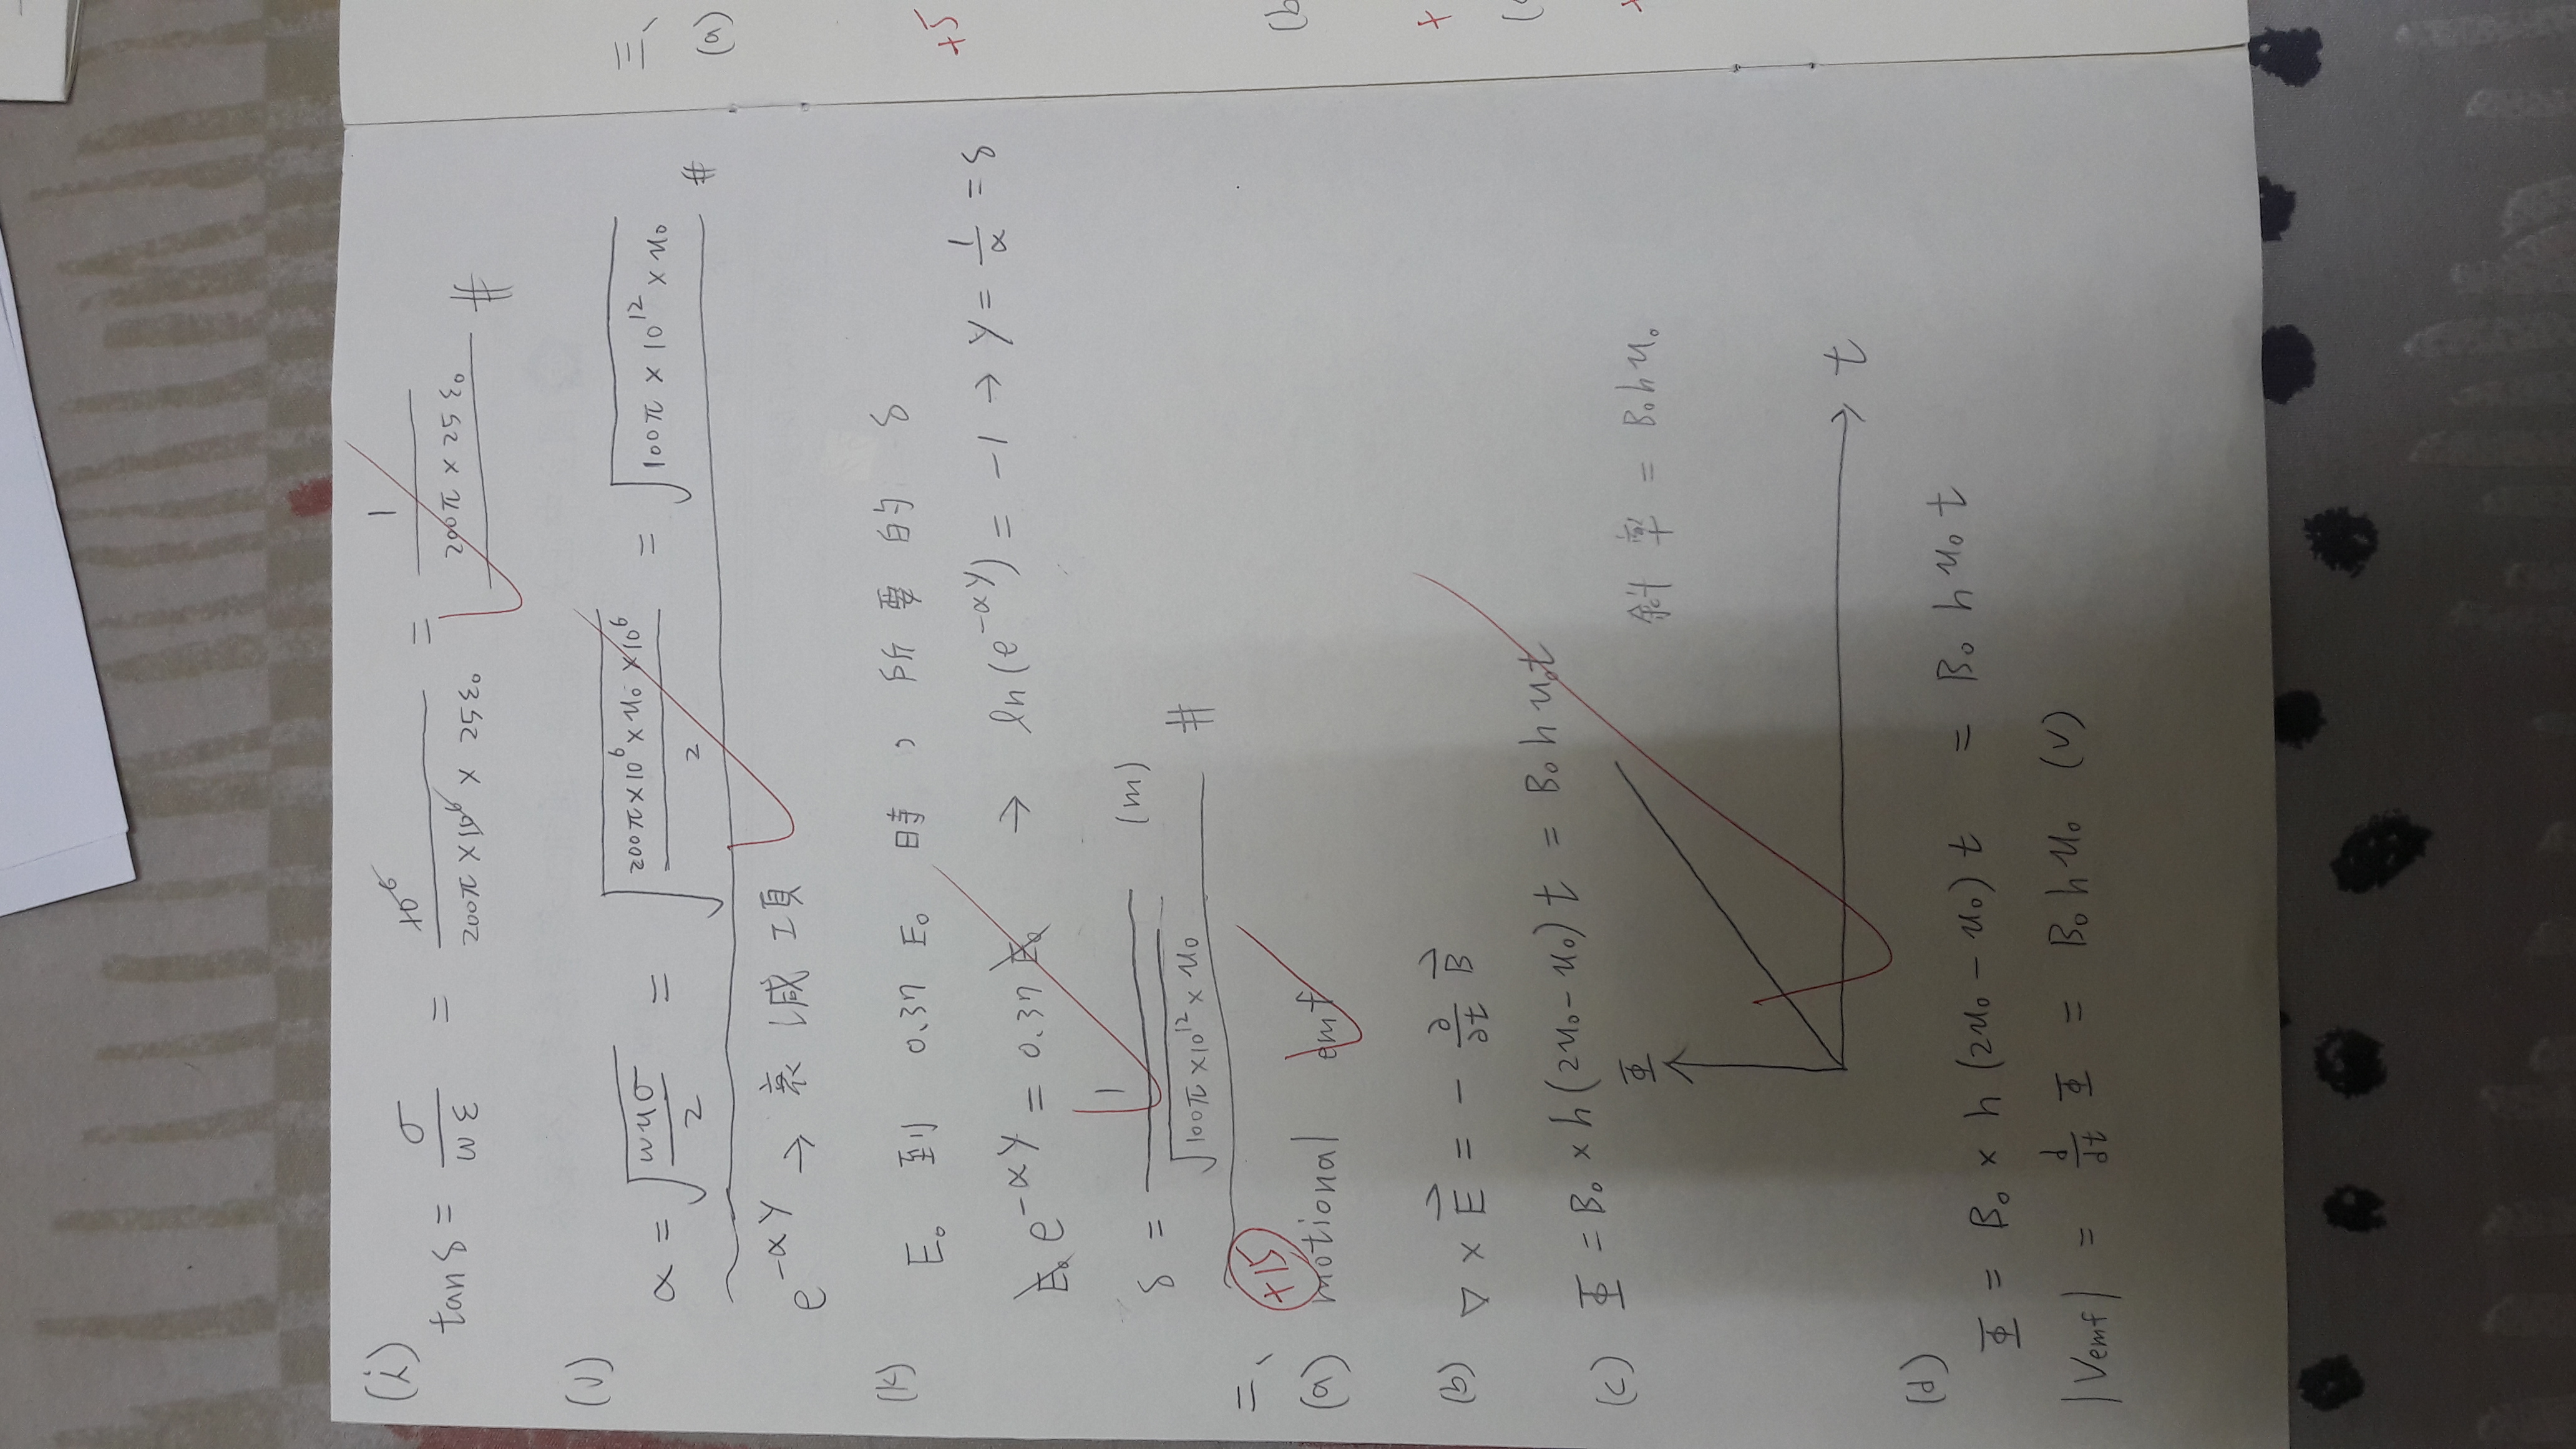 (i)
tan δ = σ/ωε = 10⁶/(200π × 10⁶ × 25ε₀) = 1/(200π × 25ε₀) #
(j)
α = √(ωμσ/2) = √(200π×10⁶×μ₀×10⁶/2) = √(100π × 10¹² × μ₀) #
e^(-αy) → 衰減項
(k)
E₀ 到 0.37 E₀ 時, 所要的 δ
E₀ e^(-αy) = 0.37 E₀ → ln(e^(-αy)) = -1 → y = 1/α = δ
δ = 1/√(100π×10¹²×μ₀) (m) #
二、 +15
(a) motional emf
(b) ∇ × E⃗ = - ∂/∂t B⃗
(c) Φ = B₀ × h(2u₀ - u₀) t = B₀ h u₀ t
Φ
斜率 = B₀ h u₀
t
(d)
Φ = B₀ × h (2u₀ - u₀) t = B₀ h u₀ t
|Vemf| = d/dt Φ = B₀ h u₀ (V)
三、
(a)
+5
(b
+
(